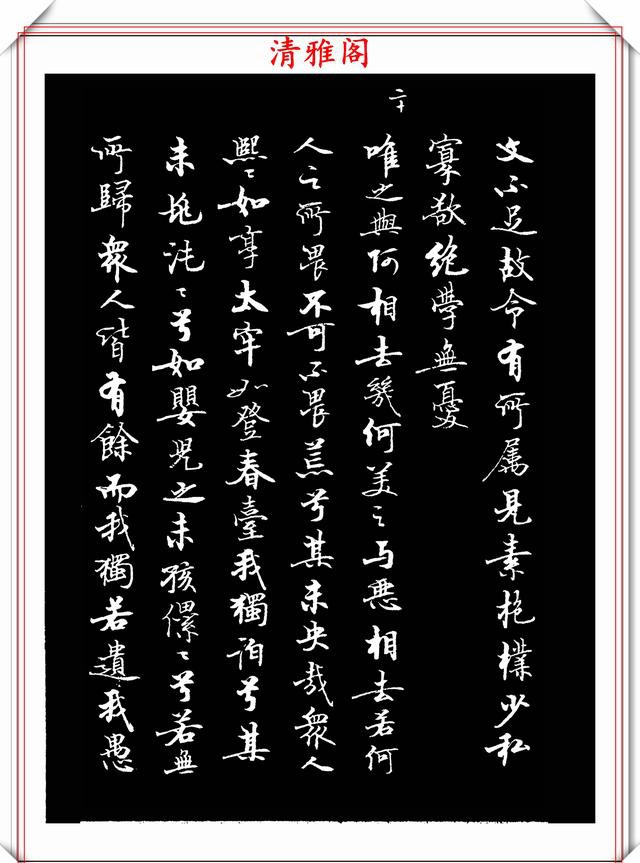 清雅阁
文不足故令有所属見素抱樸少私
寡欲絶學無憂
二十
唯之與阿相去幾何美之与惡相去若何
人之所畏不可不畏荒兮其未央哉衆人
熙〻如享太牢如登春臺我獨泊兮其
未兆沌〻兮如嬰兒之未孩儽〻兮若無
所歸衆人皆有餘而我獨若遺我愚